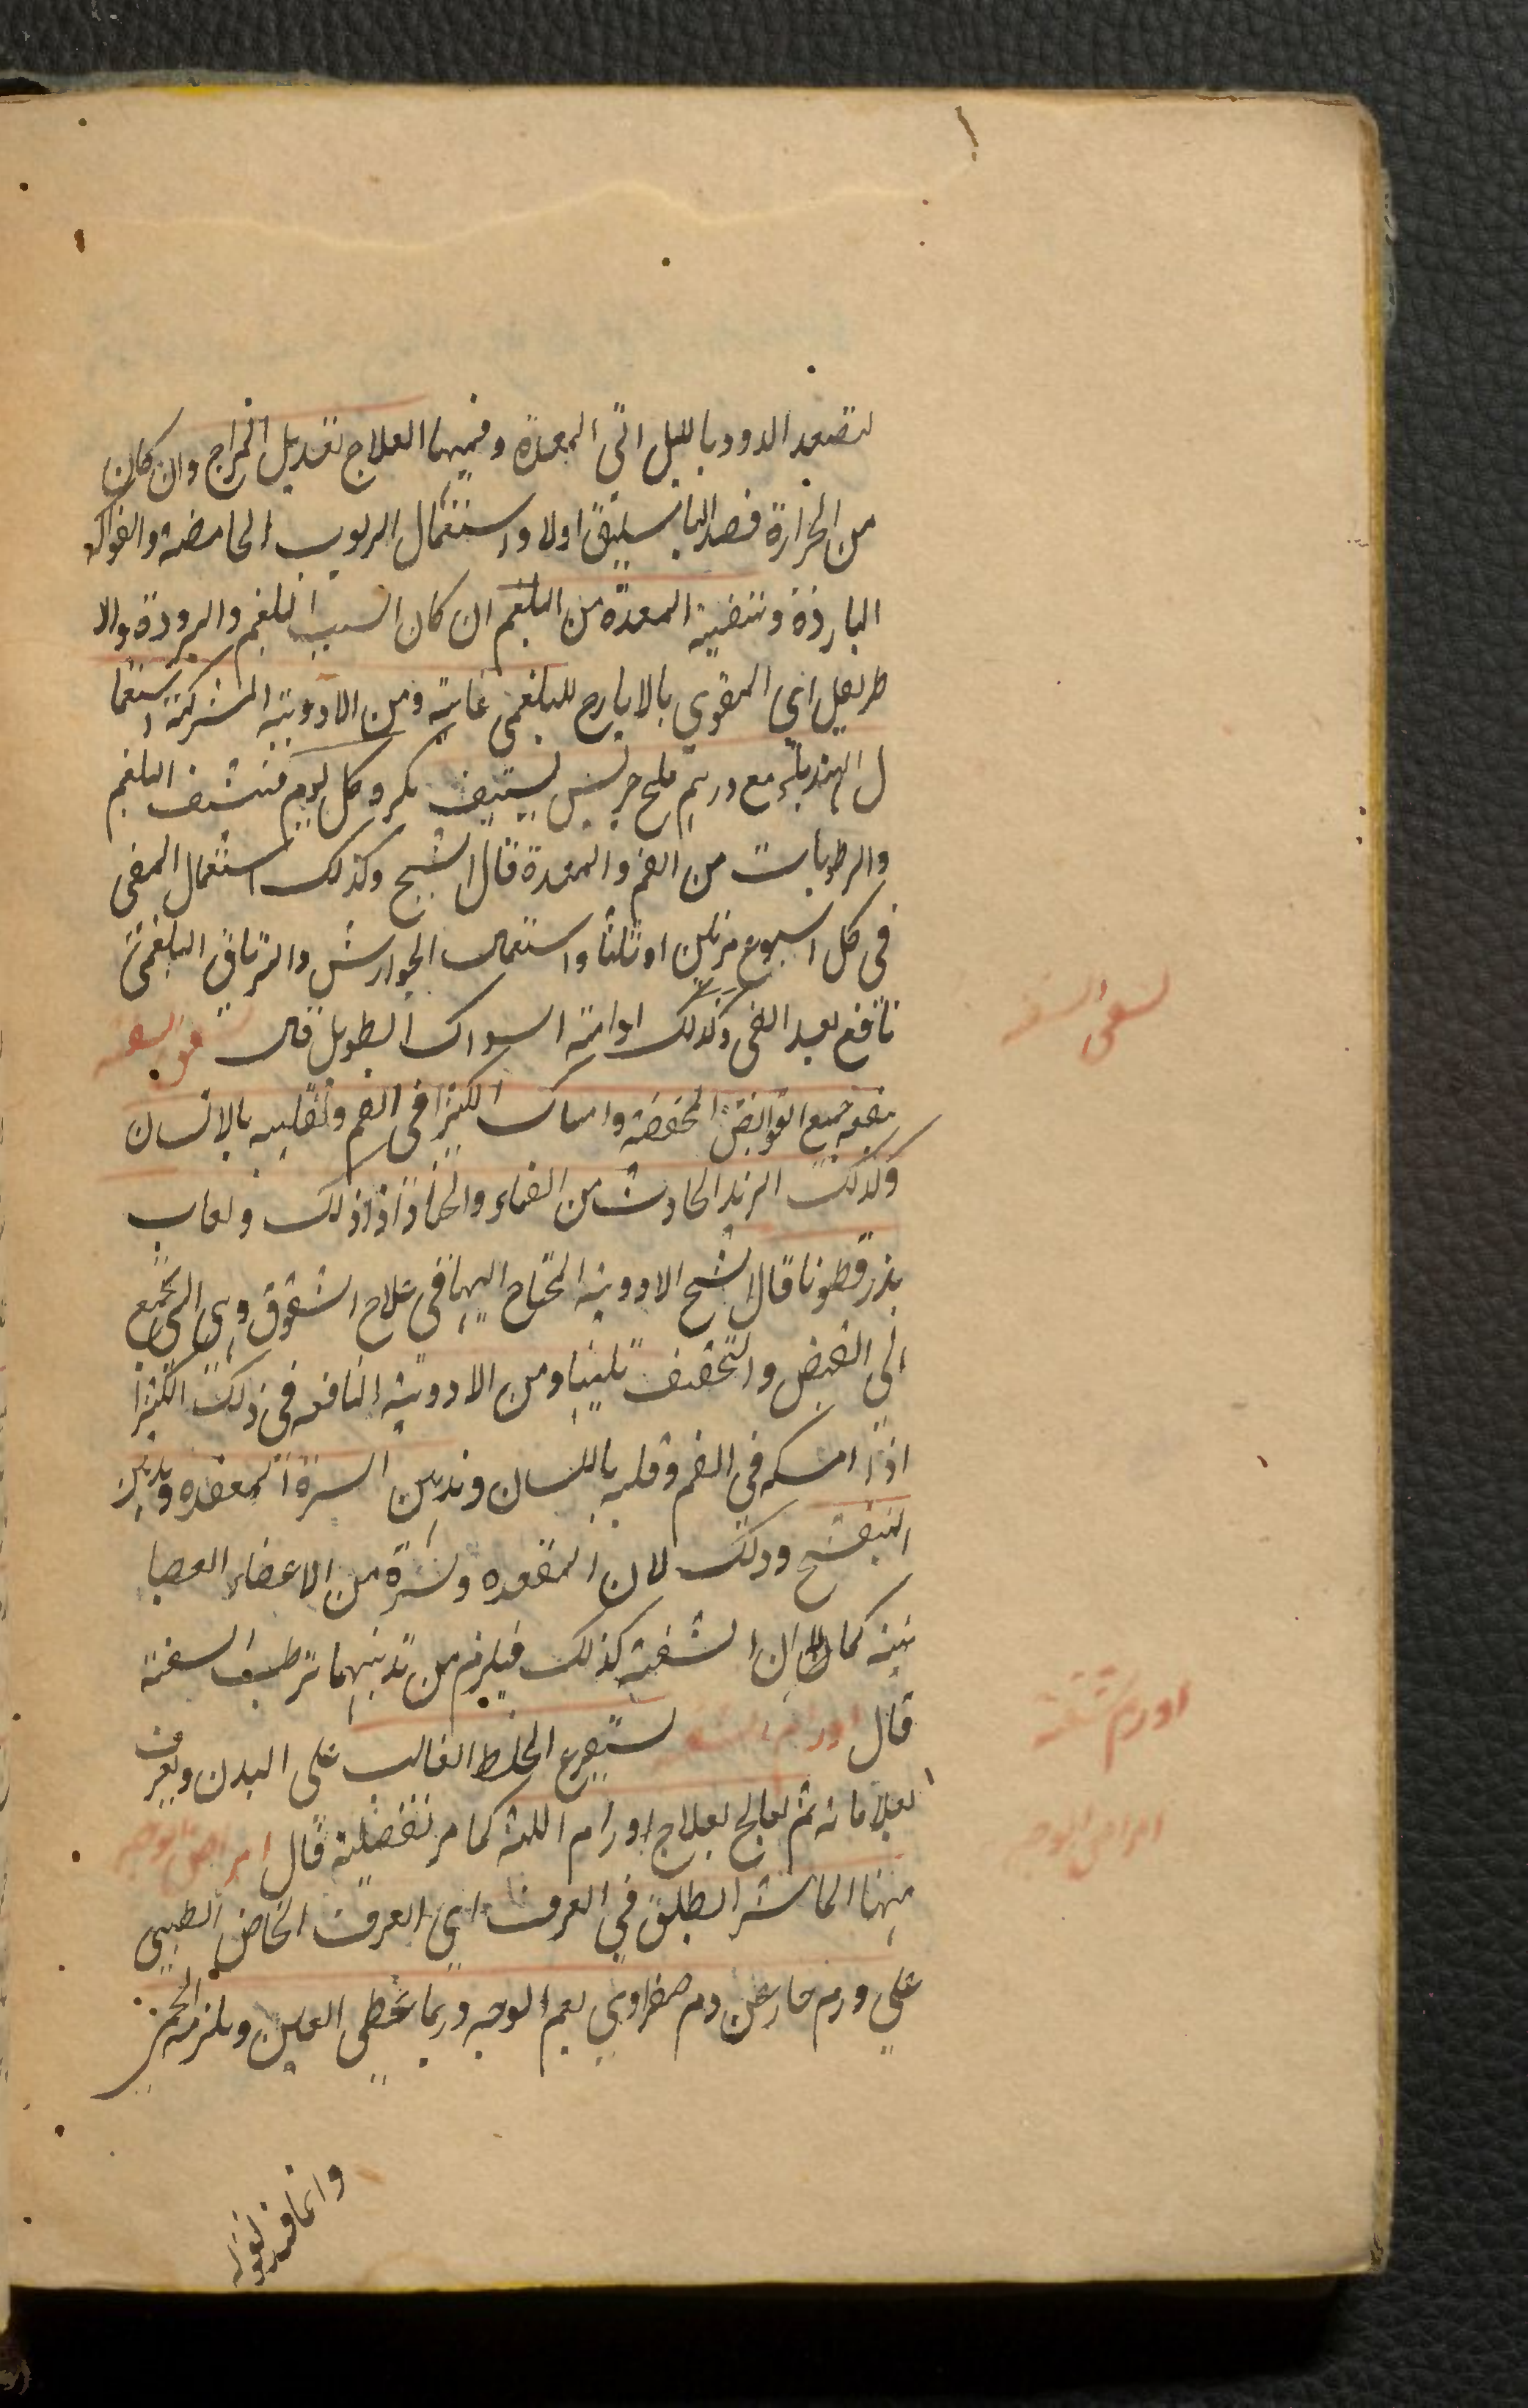 لتصعد الدود بالليل الى المعدة وفيها العلاج تعديل المزاج وان كان
من الحرارة فصد الباسليق اولا واستعمال الربوب الحامضة والفواكه
الباردة وتنقية المعدة من البلغم ان كان السبب البلغم والبرودة والا
طريفل اي المقوي بالايارج للبلغمي غاية ومن الادوية المشتركة استعما
ل الهندباء مع درهم ملح جريش يستف بكرة كل يوم فينشف البلغم
والرطوبات من الفم والمعدة قال الشيخ وكذلك استعمال القي
في كل اسبوع مرتين او ثلثا واستعمال الجوارش والترياق البلغمي
نافع بعد القي وكذلك ادامة السواك الطويل قال شقوق الشفة
ينفعه جميع القوابض المجففة وامساك الكثيرا في الفم وتقليبه بالالسان
وكذلك الزبد الحادث من القثاء والخيار اذا ذلك ولعاب
بذر قطونا قال الشيخ الادوية المحتاج اليها في علاج الشقوق هي التي تجمع
الى القبض والتجفيف تليينا ومن الادوية النافعة في ذلك الكثيرا
اذا امسكه في الفم وقلبه باللسان وتدهين السرة المقعده وتدهين
البنفسج وذلك لان المقعده وسرة من الاعضاء العصبا
نية كما ان الشفة كذلك فيلزم من تدهينهما ترطيب الشفة
قال اورام الشفة يستفرغ الخلط الغالب على البدن ويعرف
بعلاماته ثم يعالج بعلاج اورام اللثة كما مر تفصيلية قال امراض الوجه
منها الماشرا يطلق في العرف اي العرف الخاص الطبي
على ورم حار عن دم صفراوي يعم الوجه وربما غطى العين ويلزمه الحمى
شقوق الشفة
اورام شفة
امراض الوجه